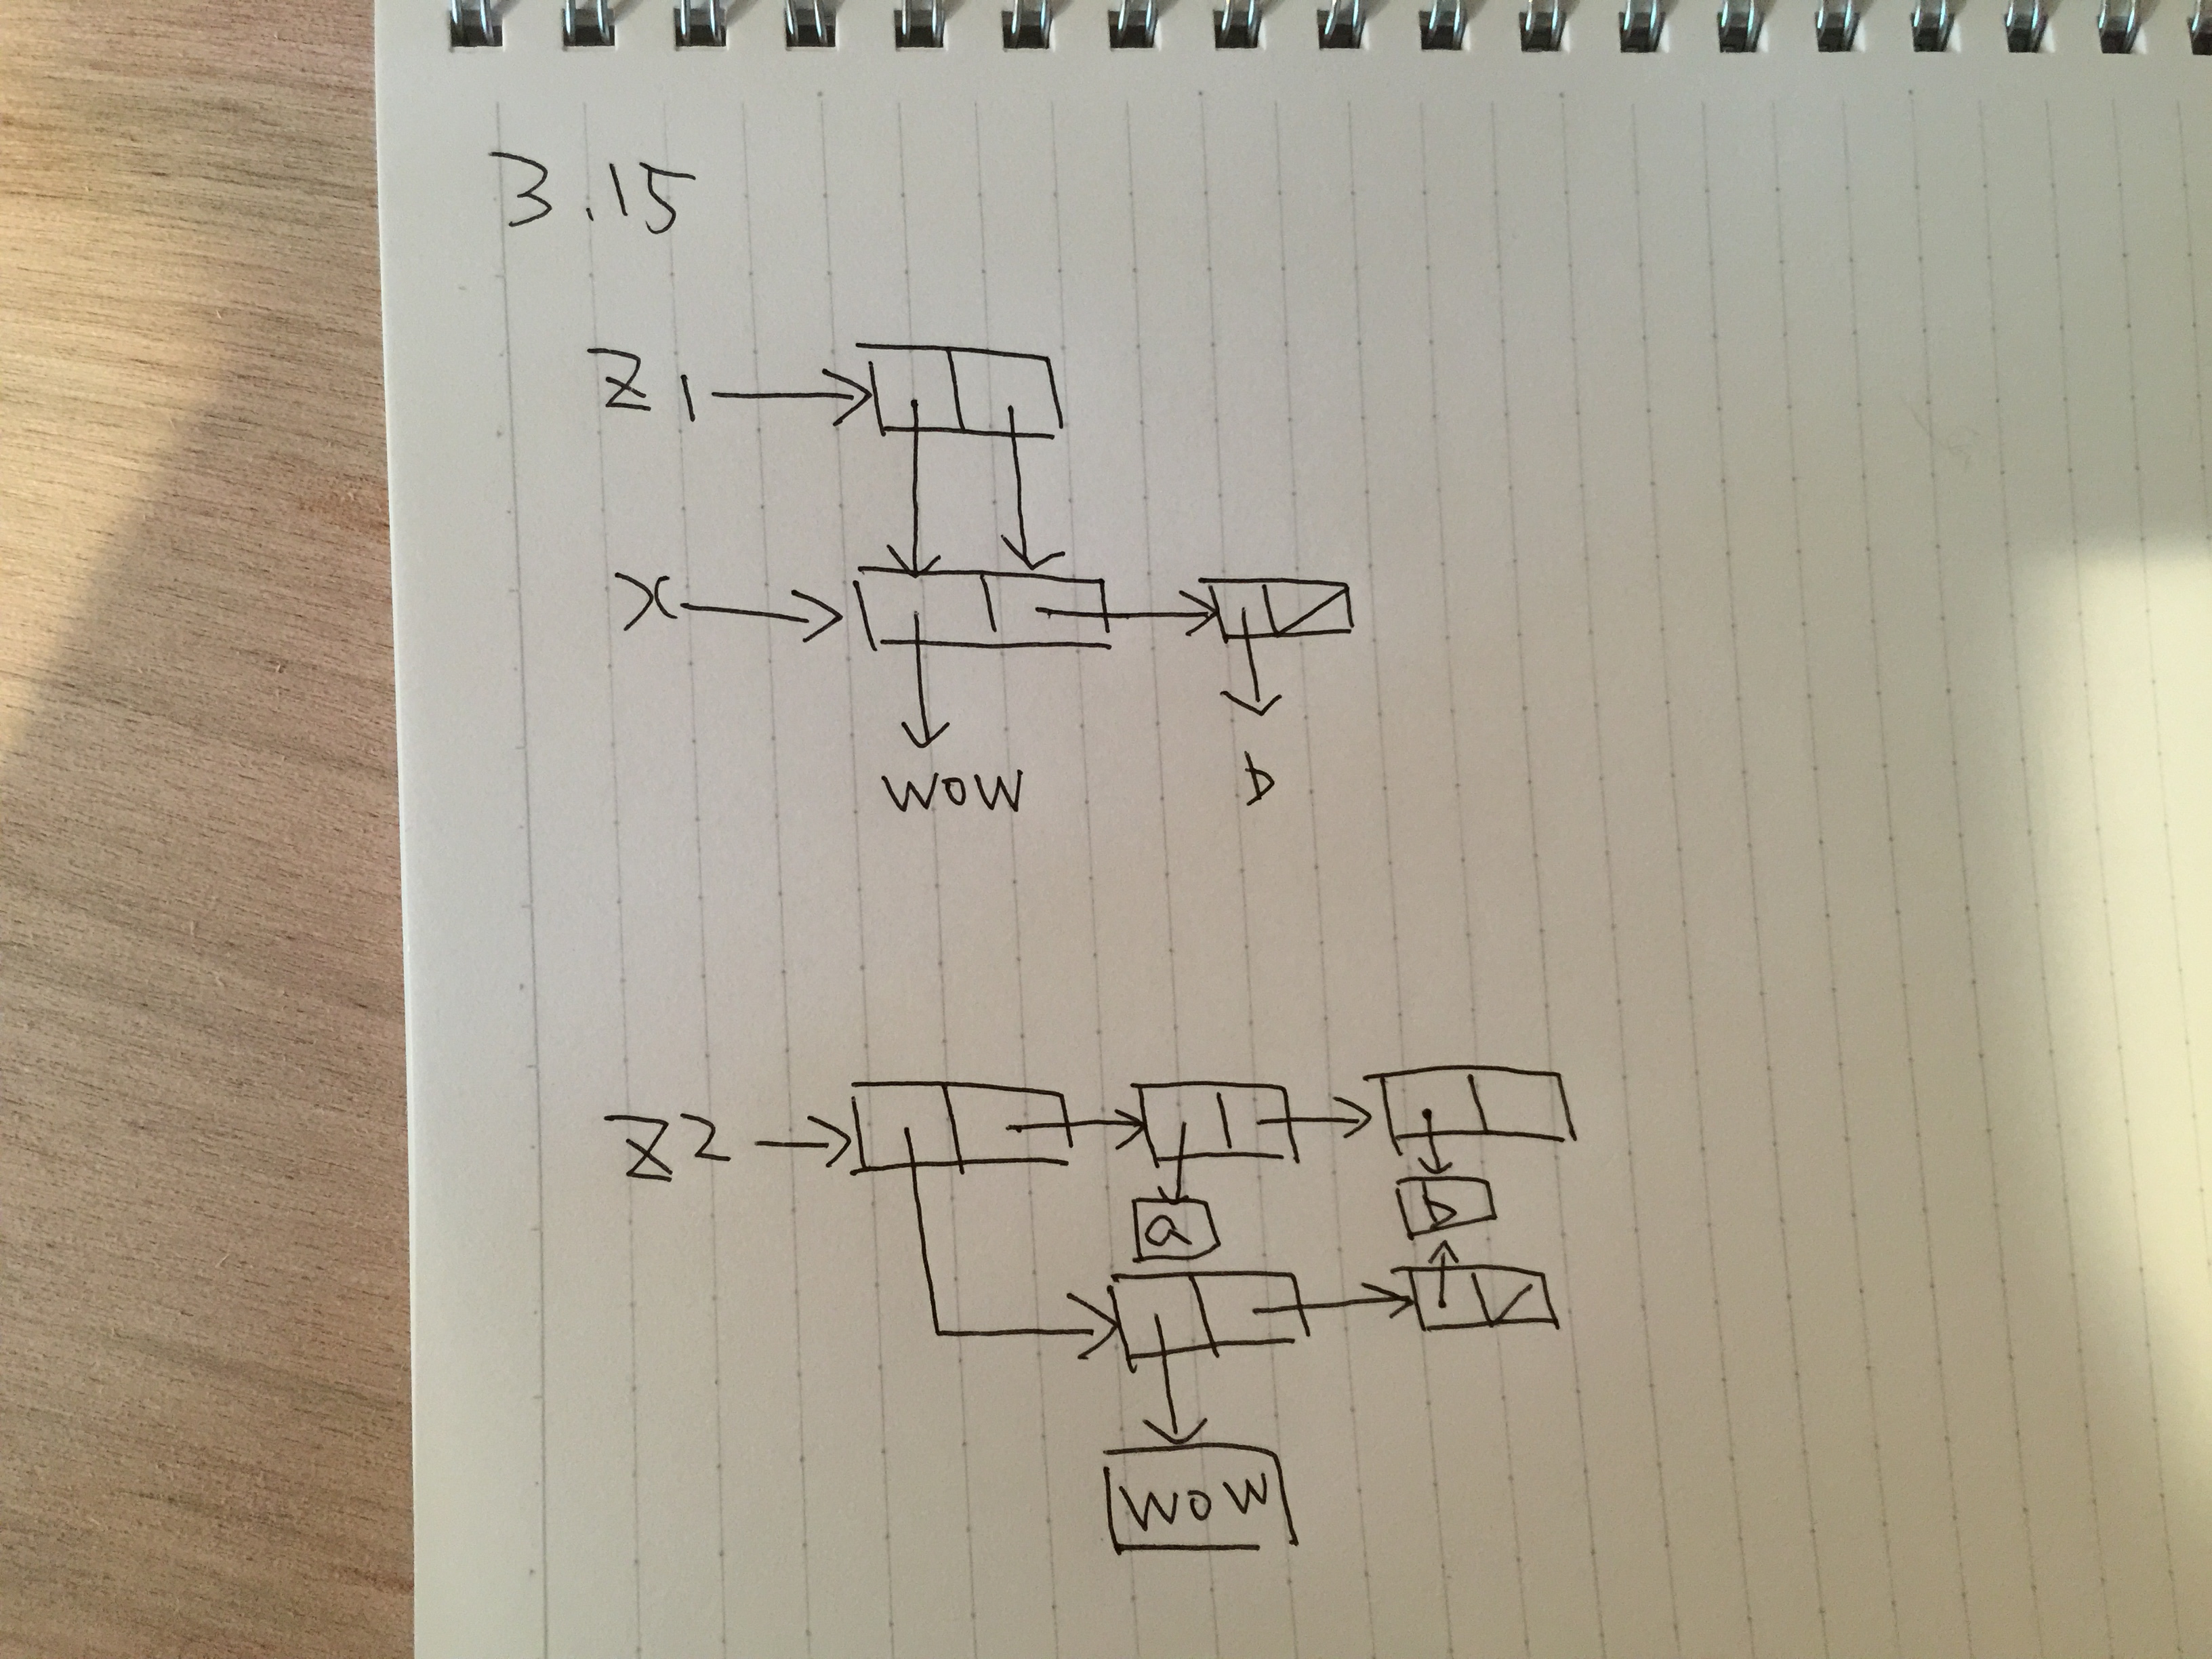 3.15
Z1
X
wow b
Z2
a b
wow